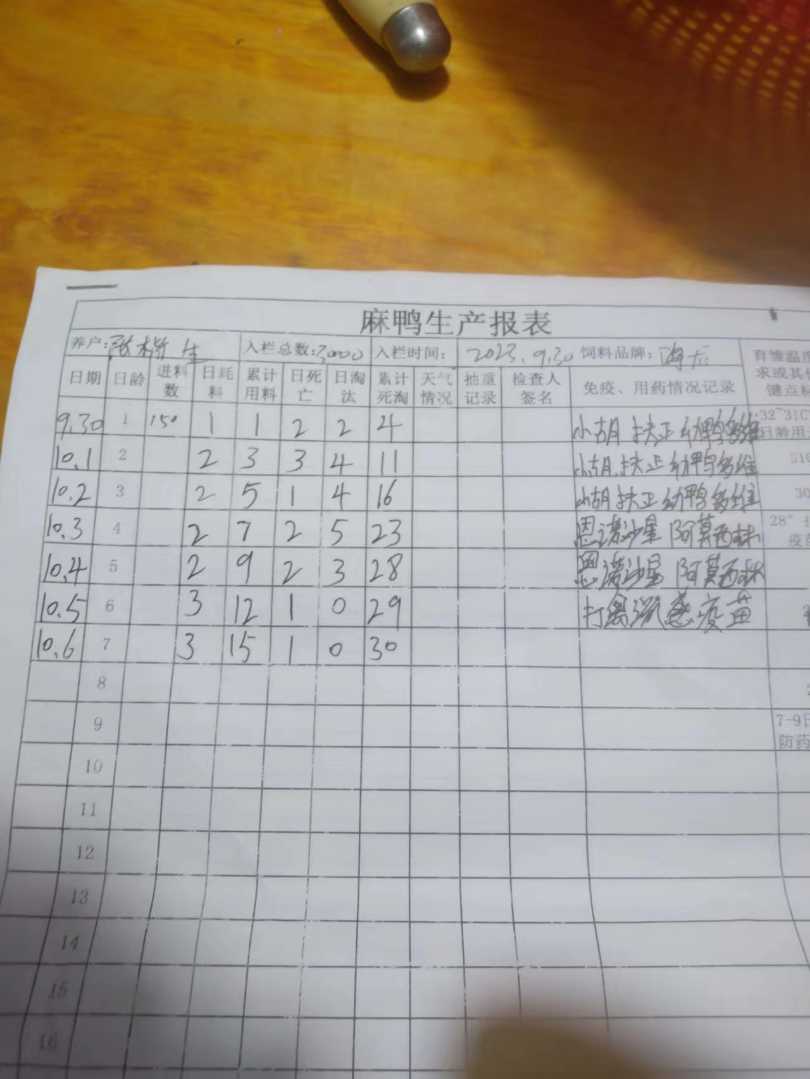 麻鸭生产报表
养户: 入栏总数:3000 入栏时间: 2023.9.30 饲料品牌: 育雏温度
求或其他
键点
日期 日龄 进料数 日耗料 累计用料 日死亡 日淘汰 累计死淘 天气情况 抽重记录 检查人签名 免疫、用药情况记录
9.30 1 150 1 1 2 2 4 小胡 扶正 幼鸭多维 32~31℃
日龄用
10.1 2 2 3 3 4 11 小胡 扶正 幼鸭多维
10.2 3 2 5 1 4 16 小胡 扶正 幼鸭多维 30
10.3 4 2 7 2 5 23 恩诺沙星 阿莫西林 28°
疫
10.4 5 2 9 2 3 28 恩诺沙星 阿莫西林
10.5 6 3 12 1 0 29 打禽流感疫苗
10.6 7 3 15 1 0 30
8
9 7-9日
防药
10
11
12
13
14
15
16